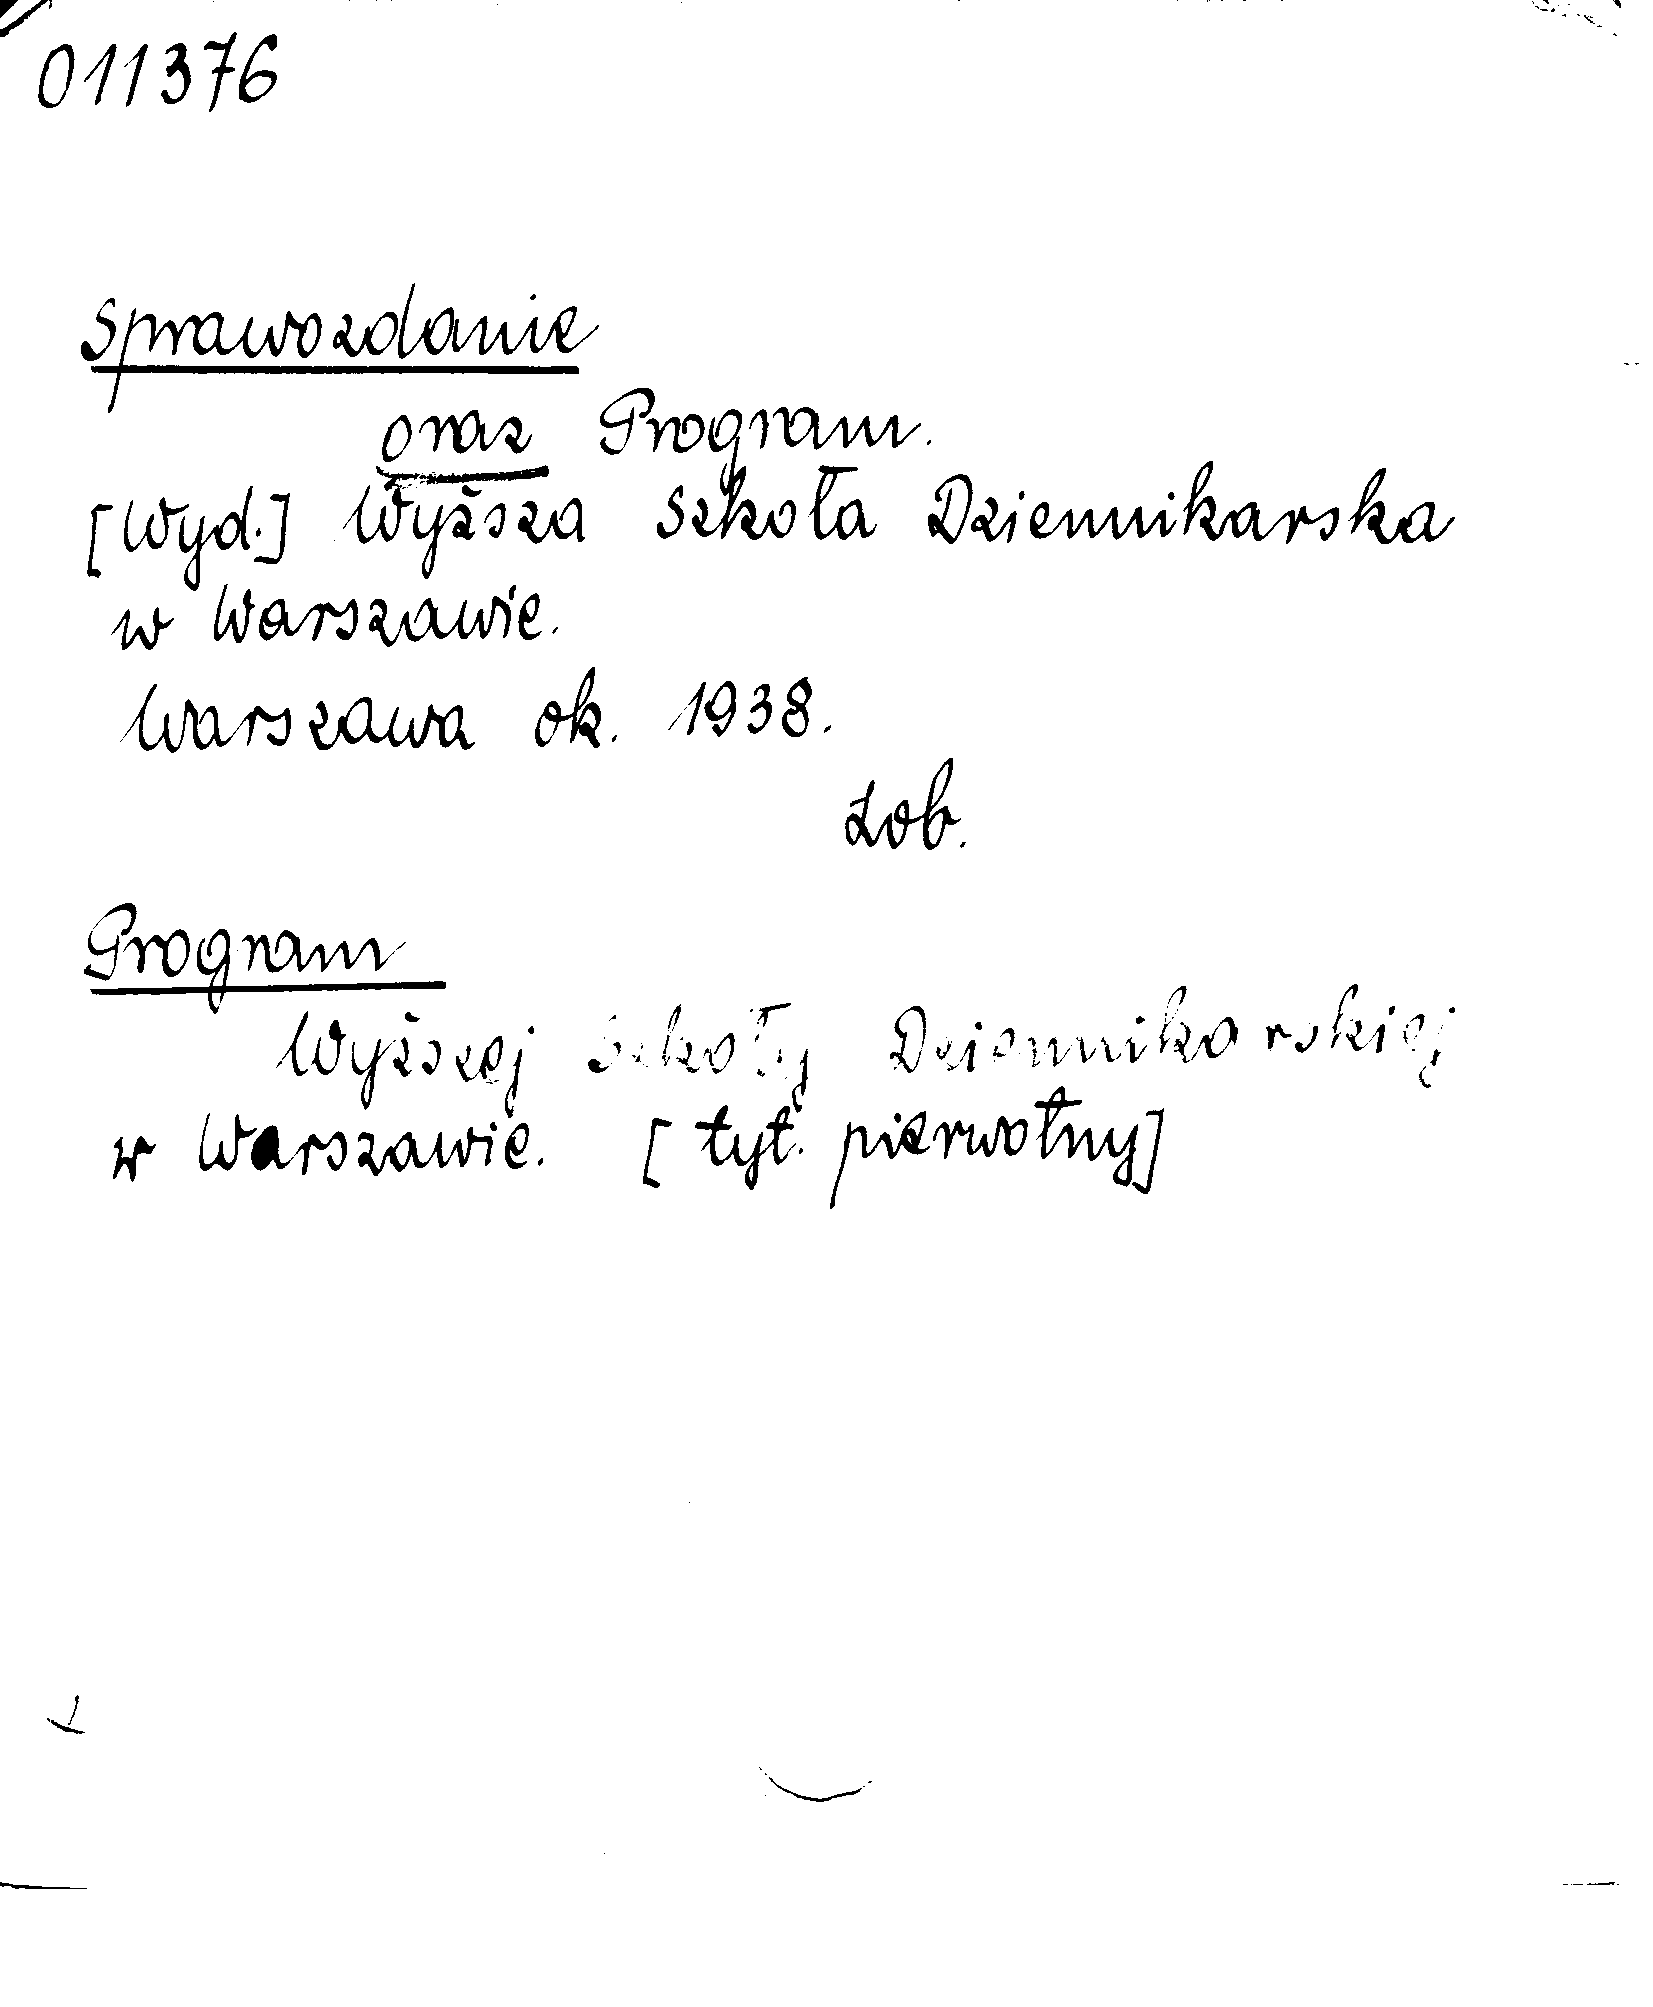 011376
Sprawozdanie
oraz Program.
[Wyd.] Wyższa Szkoła Dziennikarska
w Warszawie.
Warszawa ok. 1938.
Zob.
Program
Wyższej Szkoły Dziennikarskiej
w Warszawie. [tyt. pierwotny]